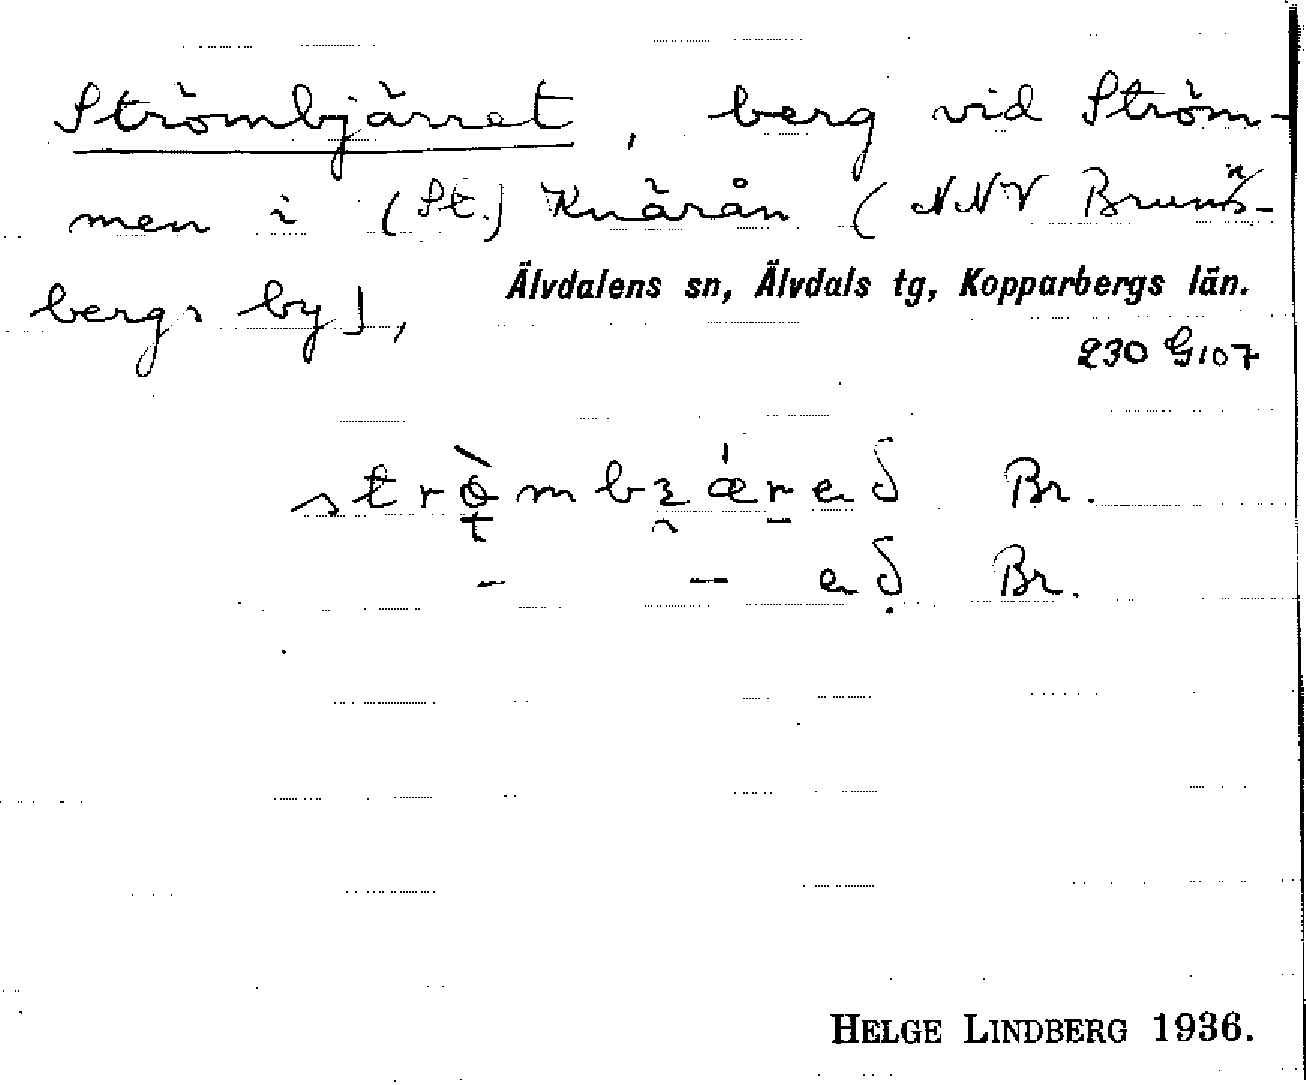 Strömbjärret, berg vid Ström-
men i (St.) Knärån (NNV Bruns-
bergs by),
Älvdalens sn, Älvdals tg, Kopparbergs län.
230 G107
Br.
- - Br.
HELGE LINDBERG 1936.